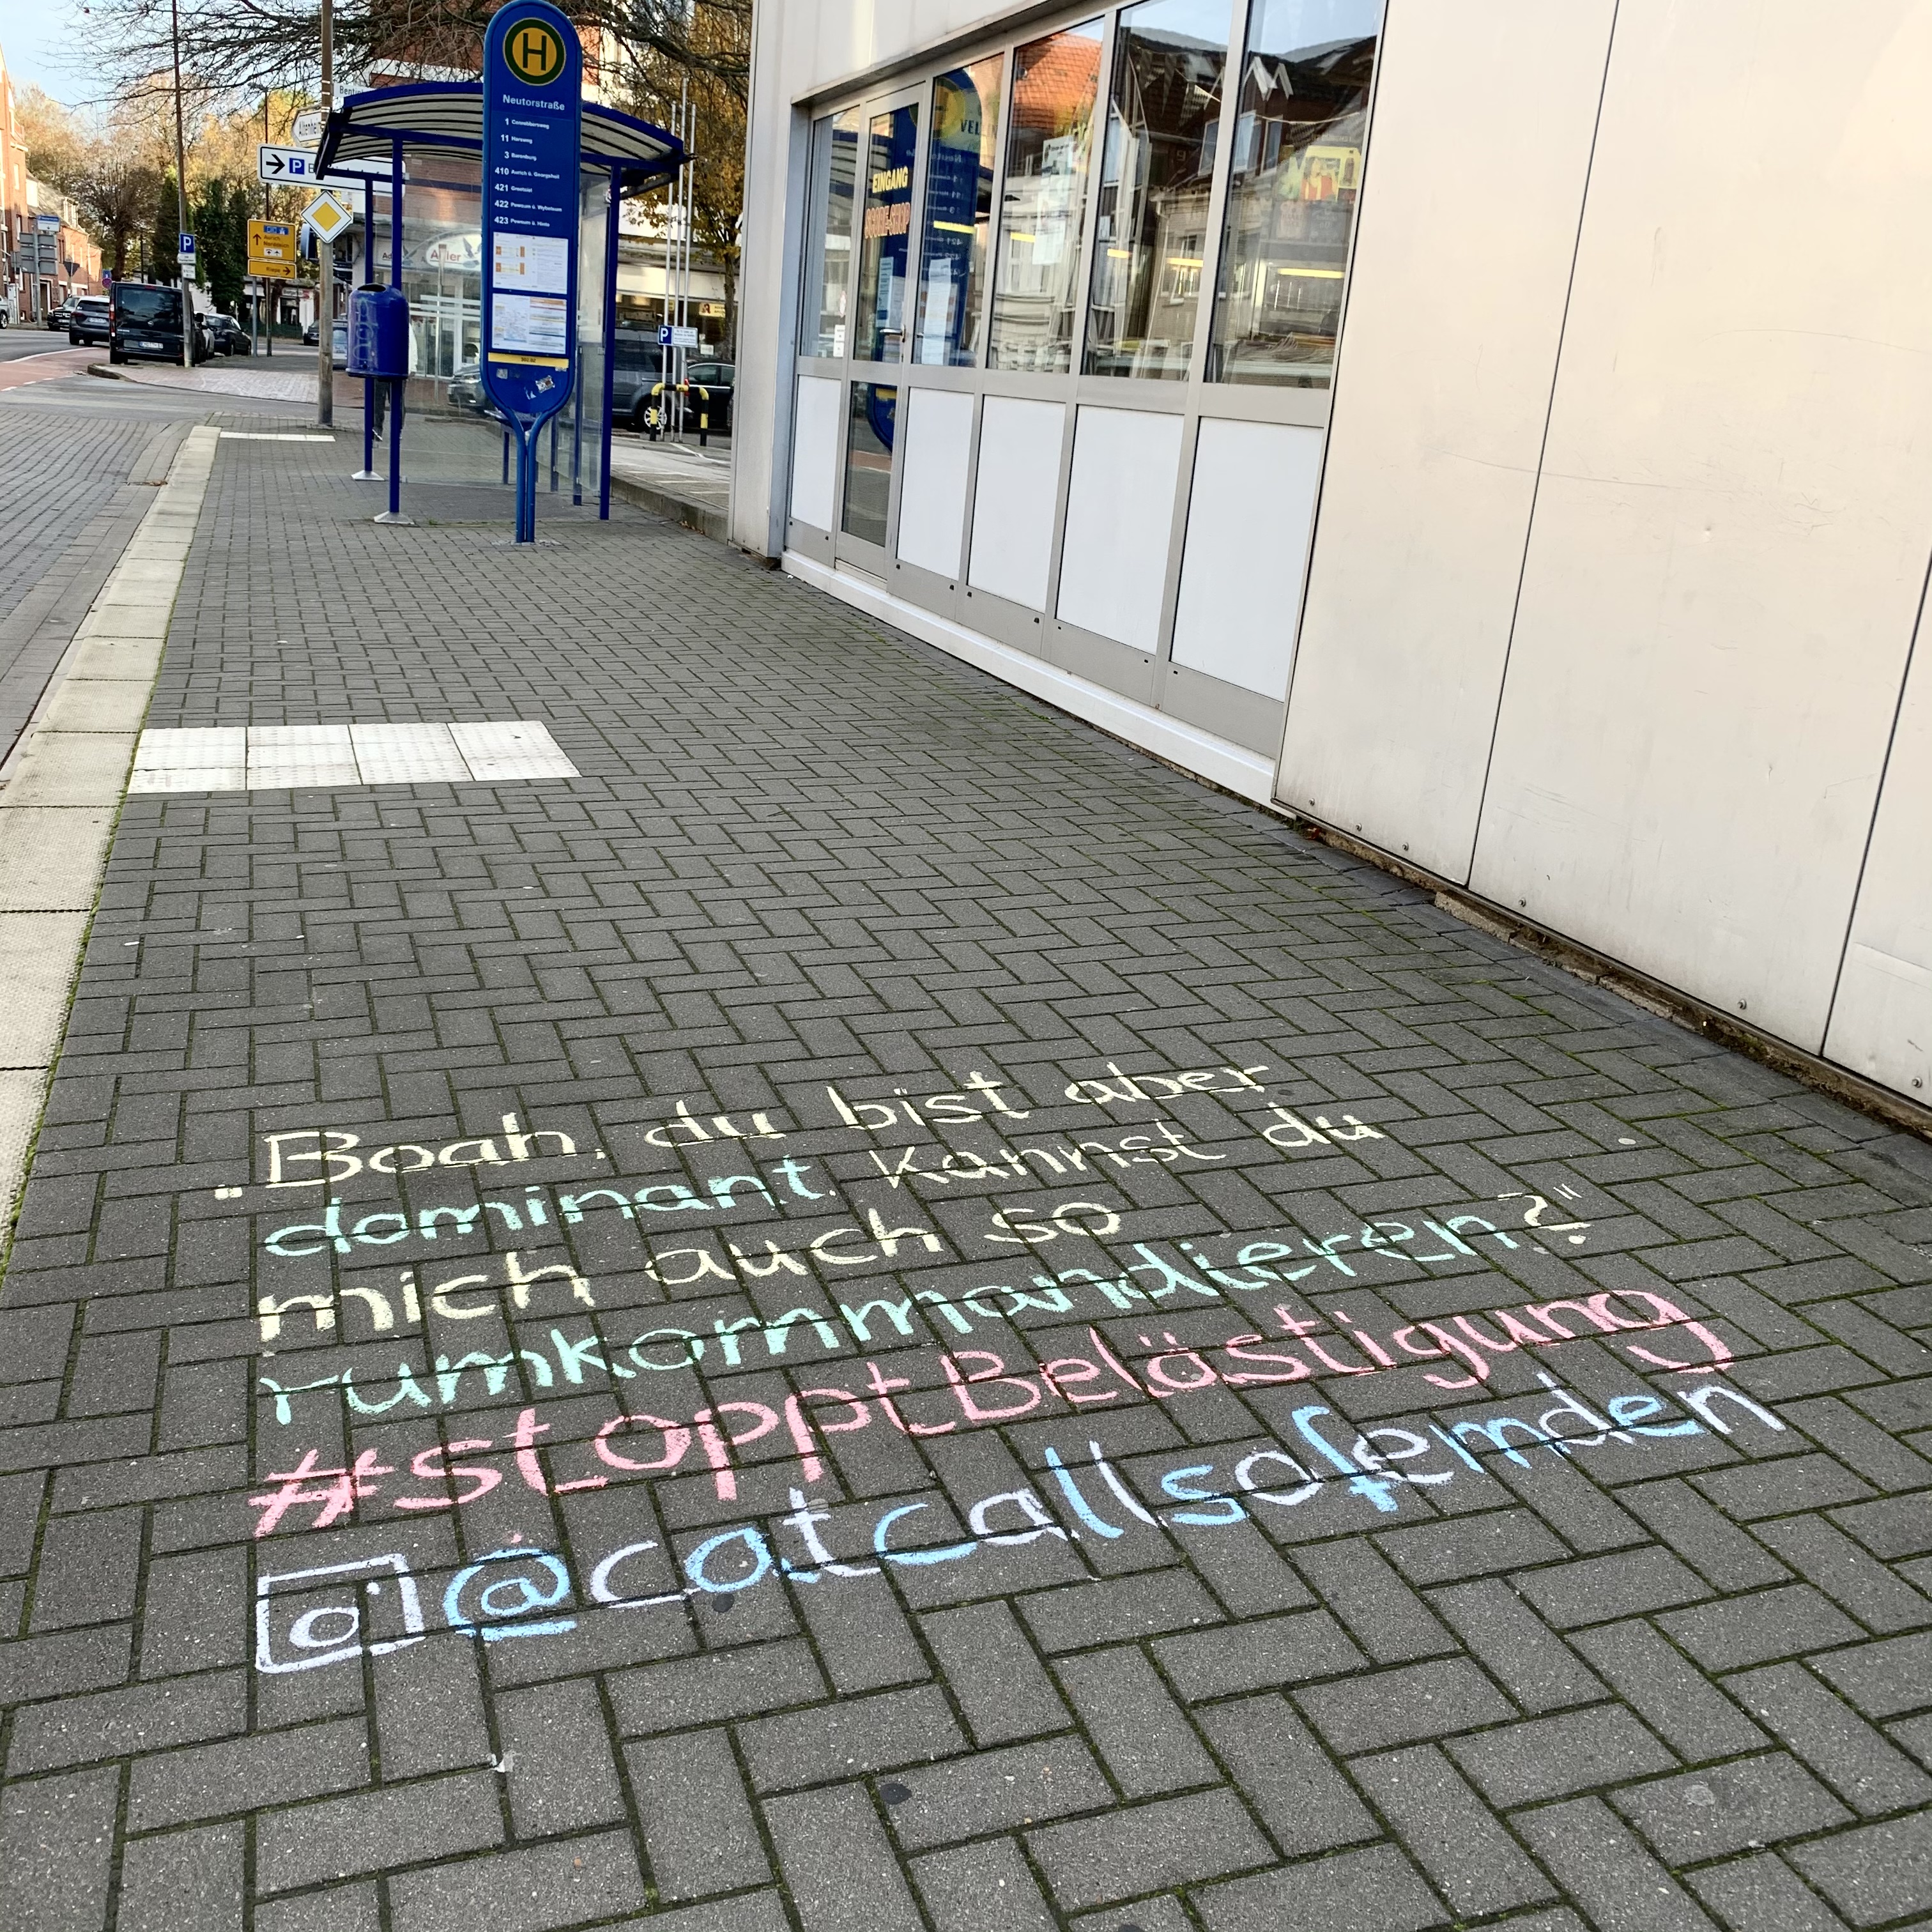 H
Neutorstraße
1
11
3 Barenburg
410 Aurich ü. Georgsheil
421 Greetsiel
422 Pewsum ü. Wybelsum
423 Pewsum ü. Hinte
P
P
P
EINGANG
Adler
„Boah, du bist aber
dominant. Kannst du
mich auch so
rumkommandieren?"
#stopptBelästigung
@catcallsofemden